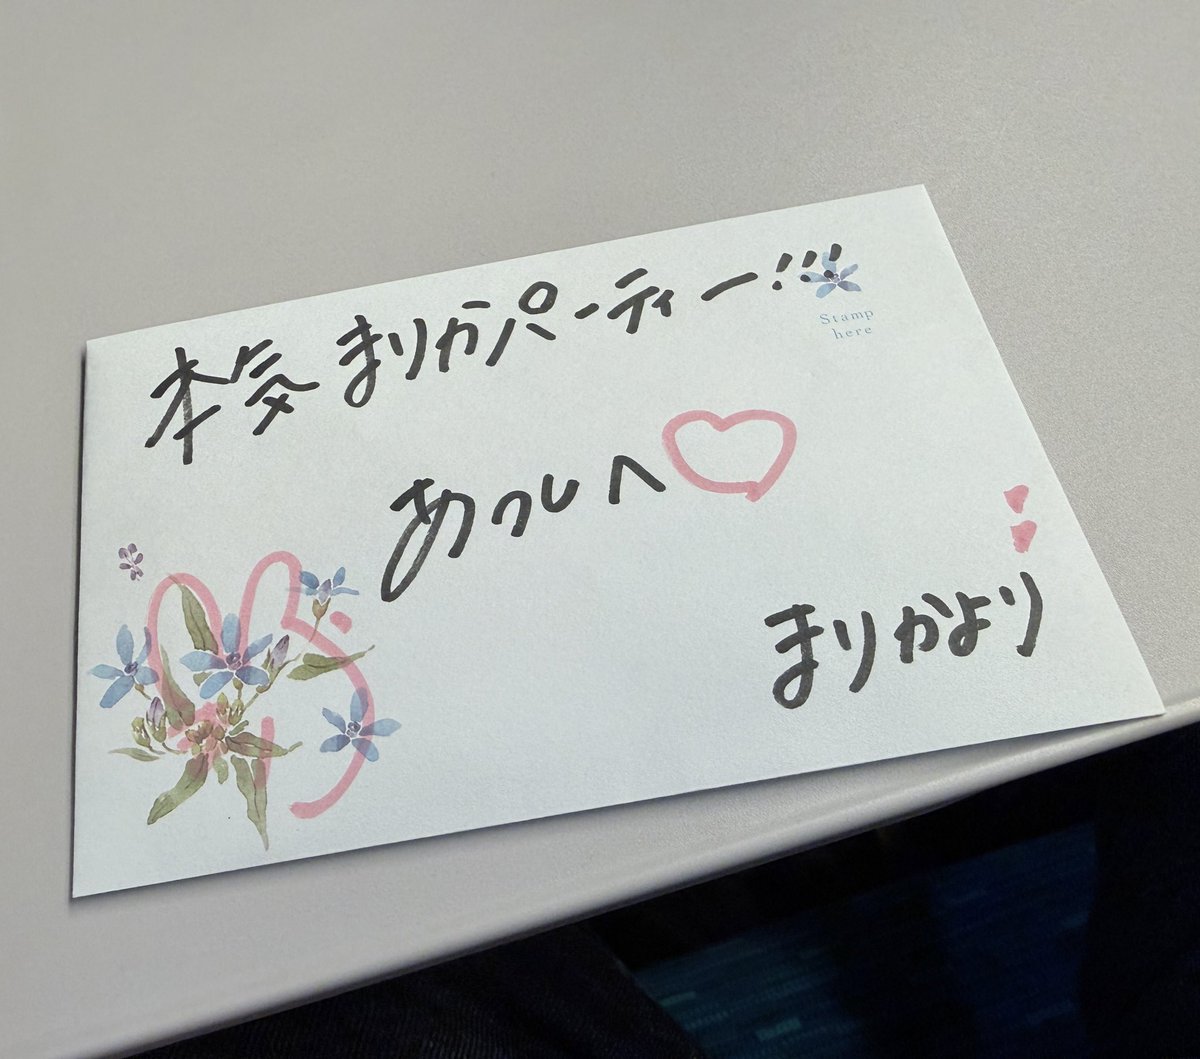 本気まりかパーティー!!!
Stamp
here
あつしへ♡
まりかより